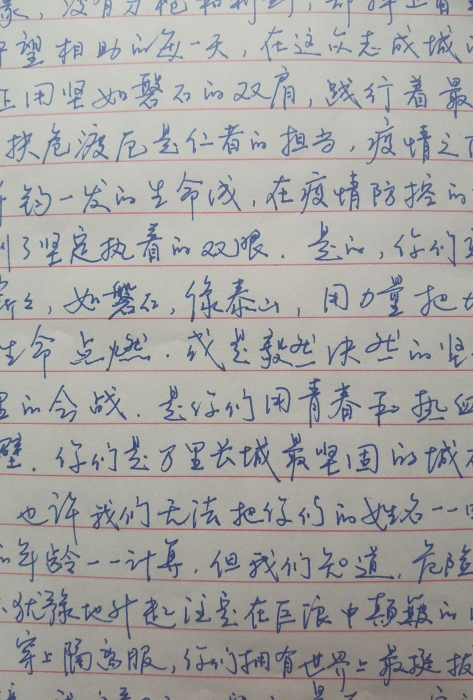 守望相助的每一天，在这众志成城
正用坚如磐石的双肩，践行着最
扶危渡厄是仁者的担当，疫情之
千钧一发的生命线，在疫情防控的
到了坚定执着的双眼．是的，你们
，如磐石，像泰山，用力量把
生命点燃．或是毅然决然的坚
的会战．是你们用青春和热血
壁．你们是万里长城最坚固的城
也许我们无法把你们的姓名一一
的年龄一一计算．但我们知道，危险
犹豫地升起注定在巨浪中颠簸的
穿上隔离服，你们拥有世界上最挺拔